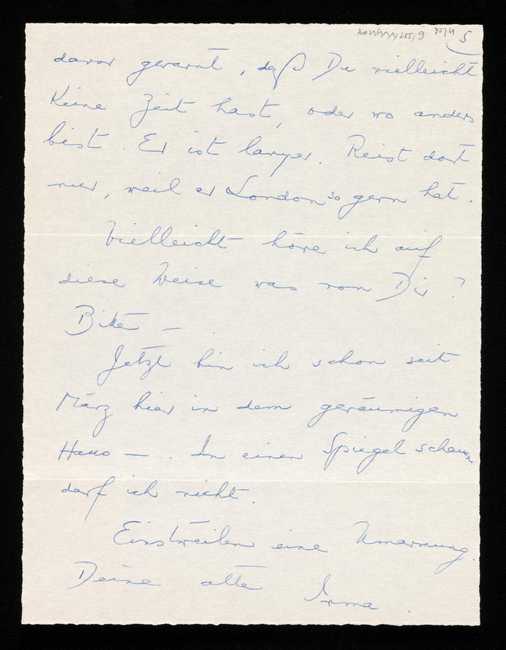 5
davor gewarnt, daß Du vielleicht
keine Zeit hast, oder wo anders
bist. Er ist lawyer. Reist dort
nur, weil er London so gern hat.
Vielleicht höre ich auf
diese Weise was von Dir?
Bitte —.
Jetzt bin ich schon seit
März hier in dem geräumigen
Haus —. In einen Spiegel schauen
darf ich nicht.
Einstweilen eine Umarmung.
Deine alte Irma.